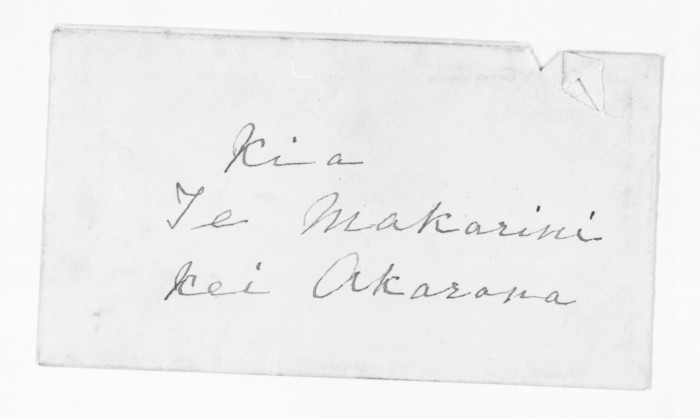 Kia
Te Makarini
Kei Akarana